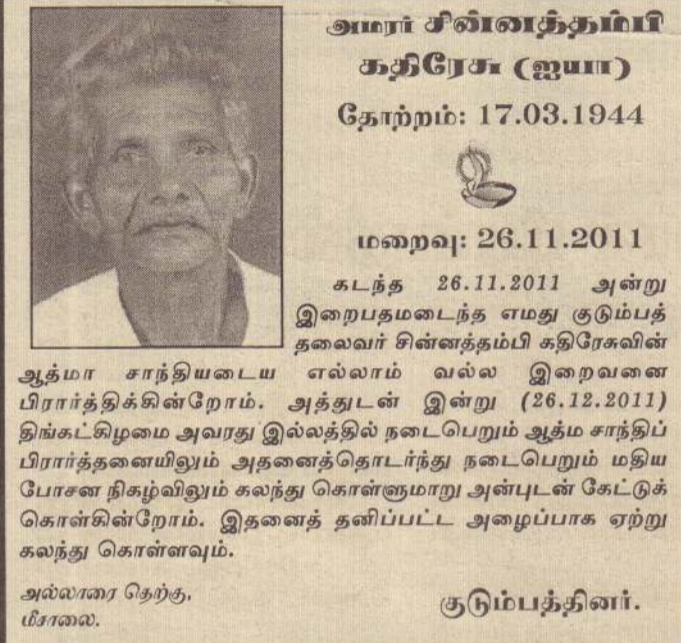 அமரர் சின்னத்தம்பி
கதிரேசு (ஐயா)
தோற்றம்: 17.03.1944
மறைவு: 26.11.2011
கடந்த 26.11.2011 அன்று
இறைபதமடைந்த எமது குடும்பத்
தலைவர் சின்னத்தம்பி கதிரேசுவின்
ஆத்மா சாந்தியடைய எல்லாம் வல்ல இறைவனை
பிரார்த்திக்கின்றோம். அத்துடன் இன்று (26.12.2011)
திங்கட்கிழமை அவரது இல்லத்தில் நடைபெறும் ஆத்ம சாந்திப்
பிரார்த்தனையிலும் அதனைத்தொடர்ந்து நடைபெறும் மதிய
போசன நிகழ்விலும் கலந்து கொள்ளுமாறு அன்புடன் கேட்டுக்
கொள்கின்றோம். இதனைத் தனிப்பட்ட அழைப்பாக ஏற்று
கலந்து கொள்ளவும்.
அல்லாரை தெற்கு,
மீசாலை.
குடும்பத்தினர்.